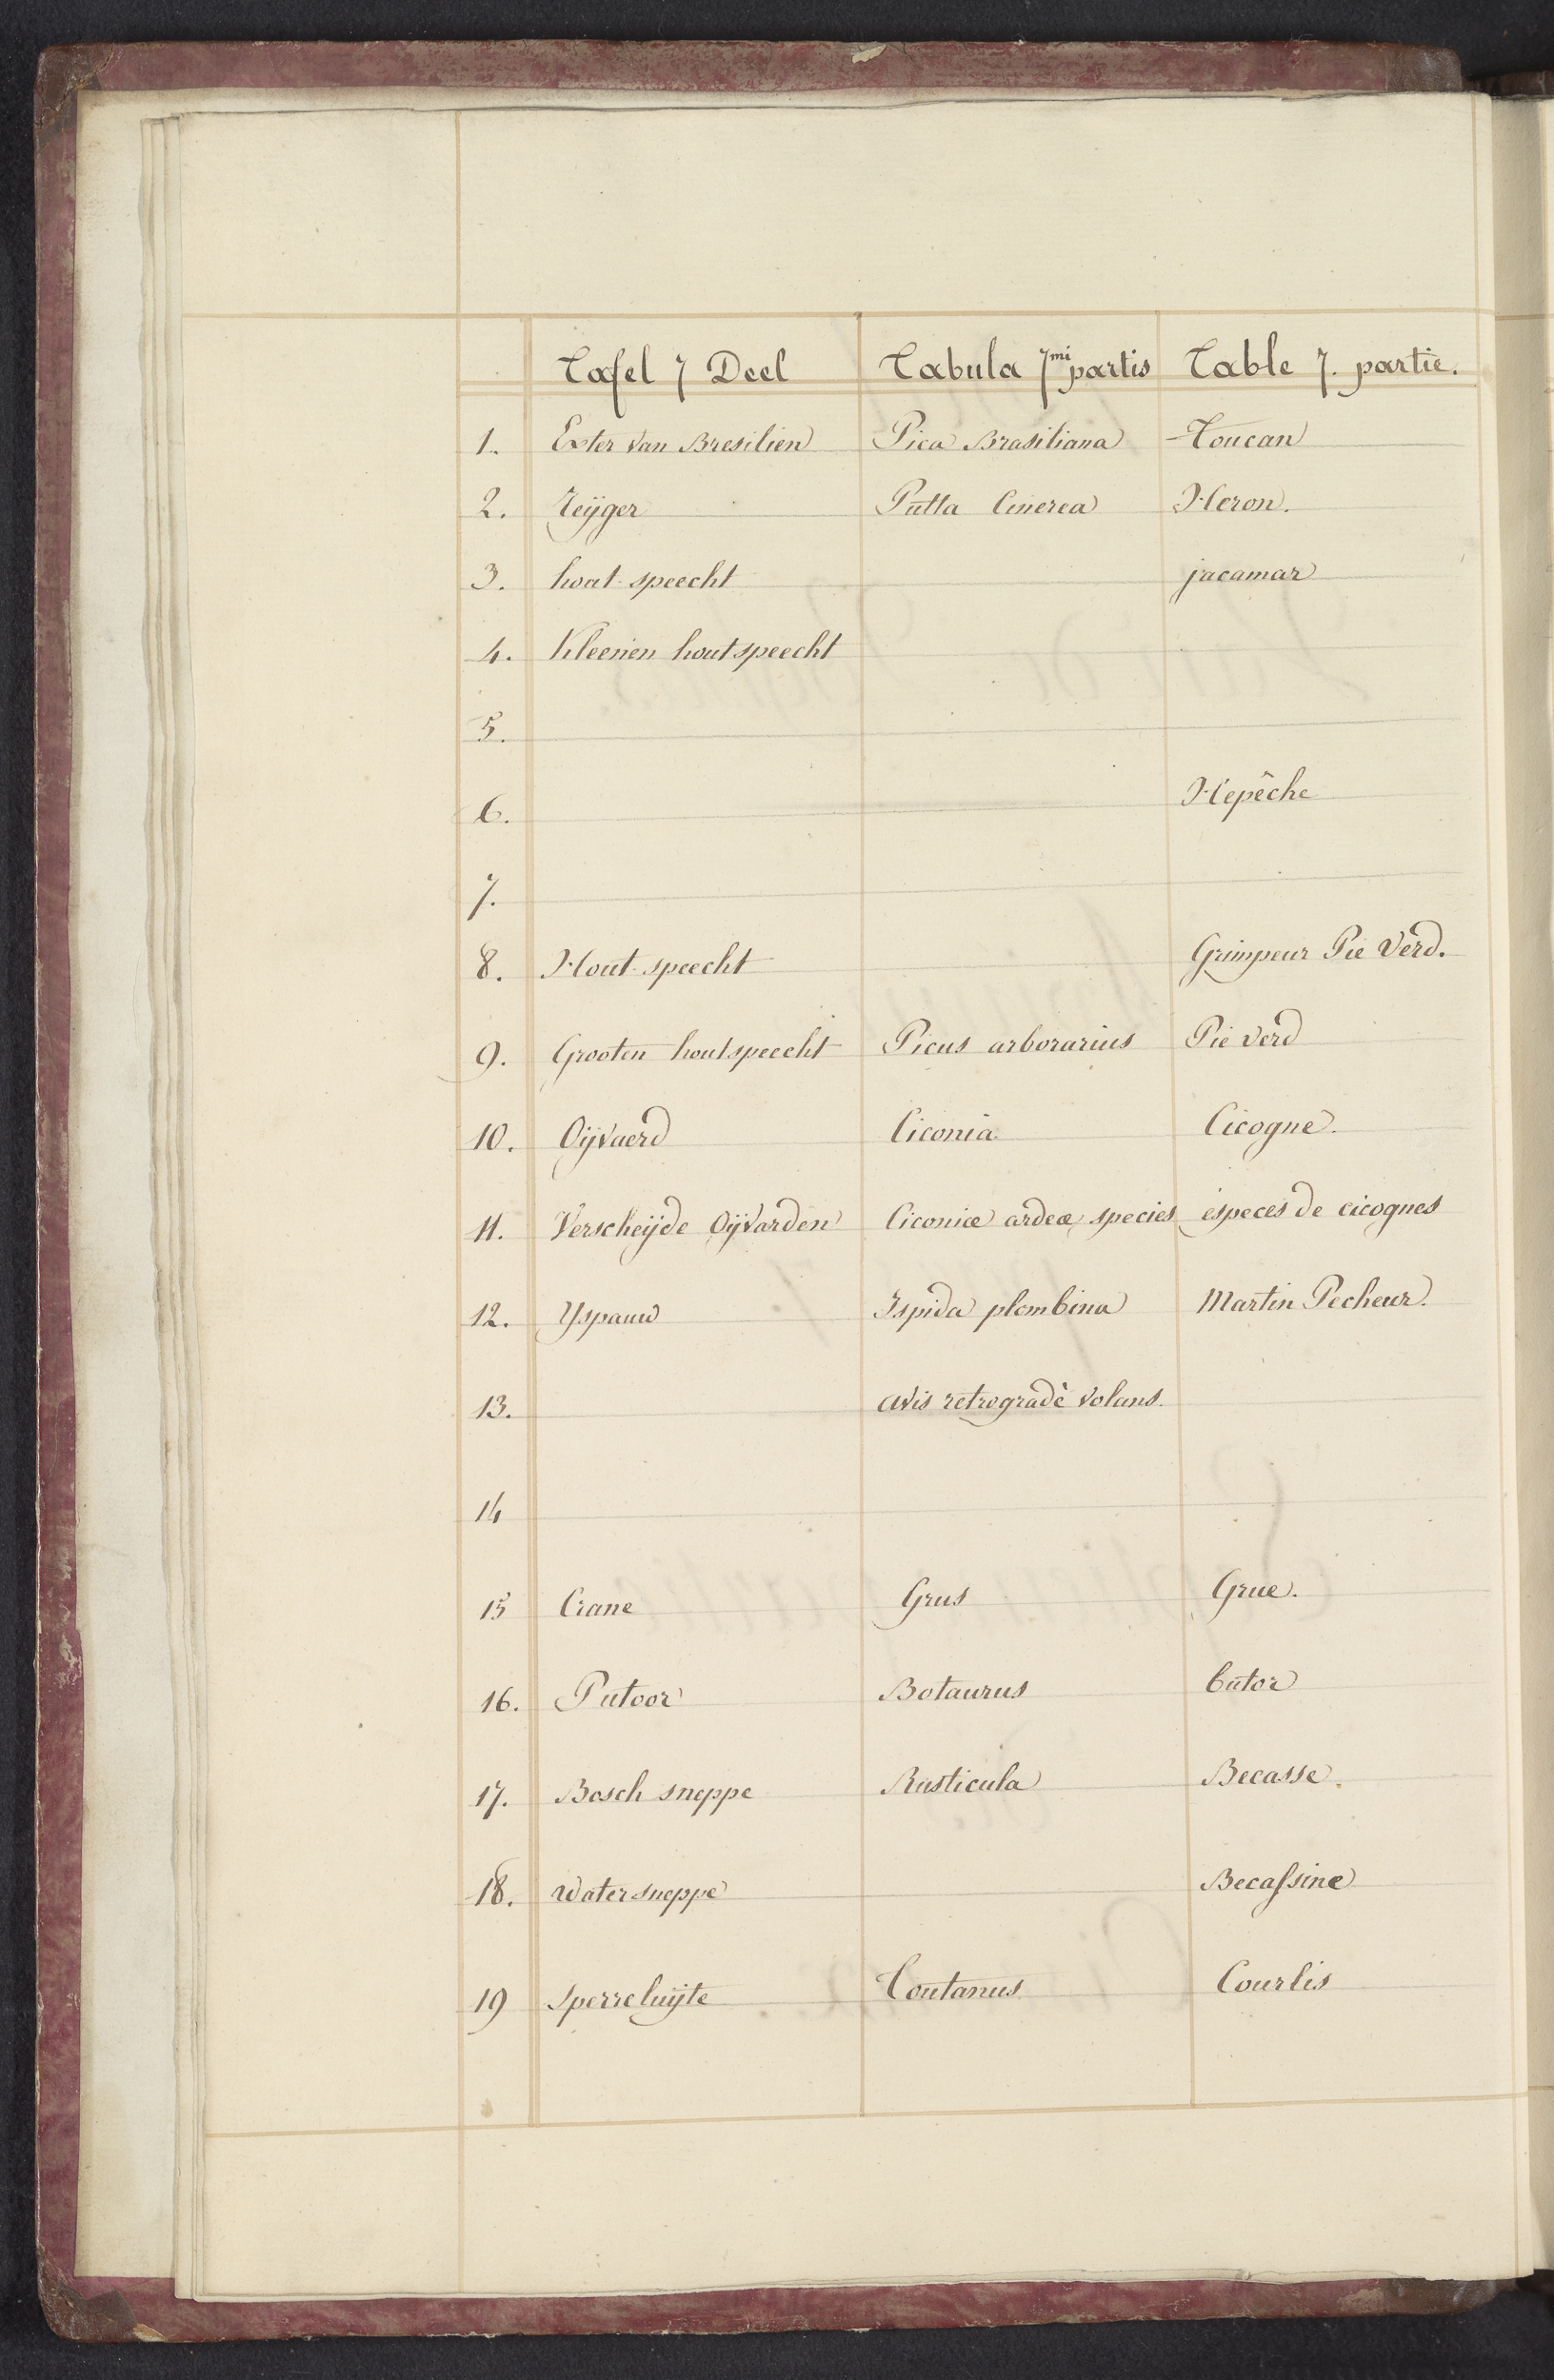 Tafel 7 Deel Tabula 7mi partis Table 7. partie.
1. Exter van Bresilien Pica Brasiliana Toucan
2. Reÿger Putta Cinerea Heron.
3. hout-speecht jacamar
4. Kleenen houtspeecht
5.
6. Hepêche
7.
8. Hout-speecht Grimpeur Pie Verd.
9. Grooten houtspeecht Picus arborarius Pie verd
10. Oÿvaerd Ciconia Cicogne.
11. Verscheÿde Oÿvarden Ciconiæ ardeæ species especes de cicognes
12. Yspauw Ispida plombina Martin Pecheur.
13. avis retrogradè volans.
14
15 Crane Grus Grue.
16. Putoor Botaurus butor
17. Bosch sneppe Rusticula Becasse.
18. watersneppe Becaſsine
19 sperreluÿte Toutanus Courlis